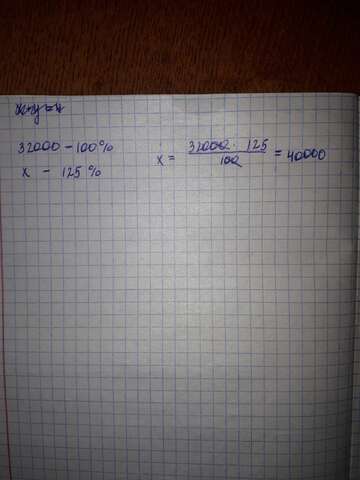 32000 - 100%
x - 125%
x = 32000 · 125 / 100 = 40000